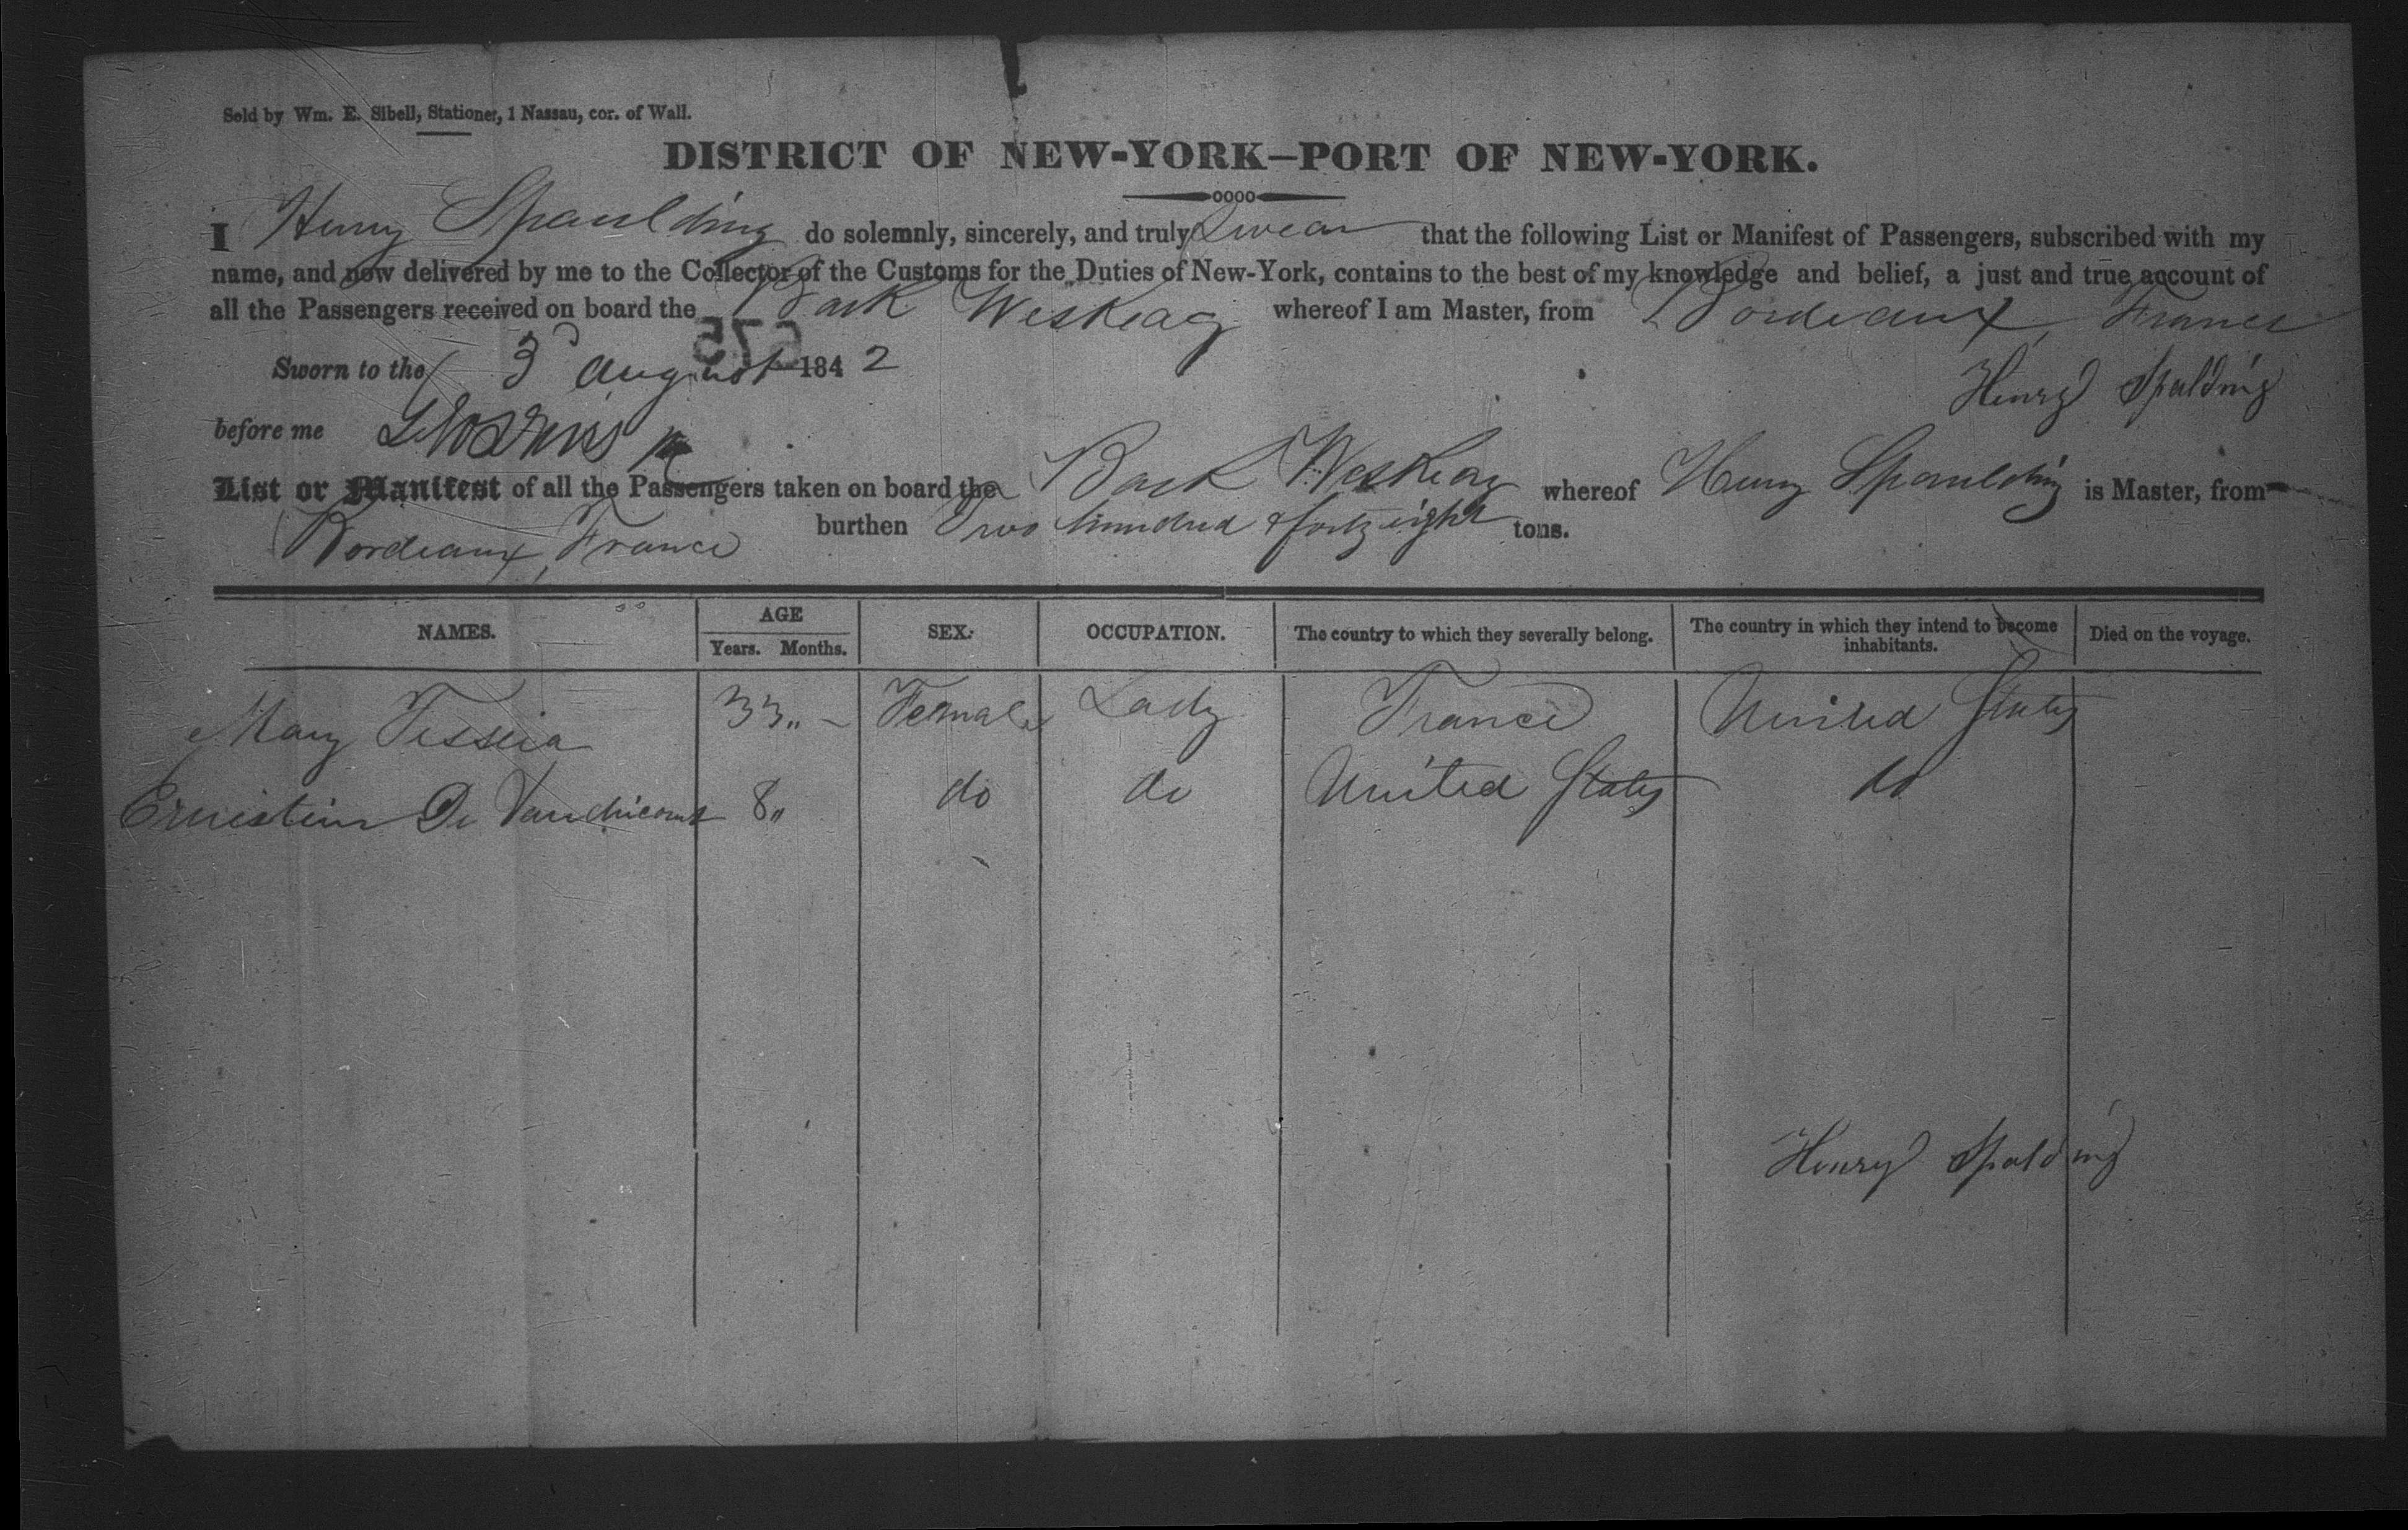 Sold by Wm. E. Sibell, Stationer, 1 Nassau, cor. of Wall.
DISTRICT OF NEW-YORK—PORT OF NEW-YORK.
I Henry Spaulding do solemnly, sincerely, and truly Swear that the following List or Manifest of Passengers, subscribed with my
name, and now delivered by me to the Collector of the Customs for the Duties of New-York, contains to the best of my knowledge and belief, a just and true account of
all the Passengers received on board the Bark Weskeag whereof I am Master, from Bordeaux, France
575
Sworn to the 3d August 1842
Henry Spalding
before me
List or Manifest of all the Passengers taken on board the Bark Weskeag whereof Henry Spaulding is Master, from
Bordeaux, France burthen Two hundred & forty eight tons.
NAMES. AGE Years. Months. SEX. OCCUPATION. The country to which they severally belong. The country in which they intend to become inhabitants. Died on the voyage.
Mary Tesseia 33 „ - Female Lady France United States
De 8 „ do do United States do
Henry Spalding